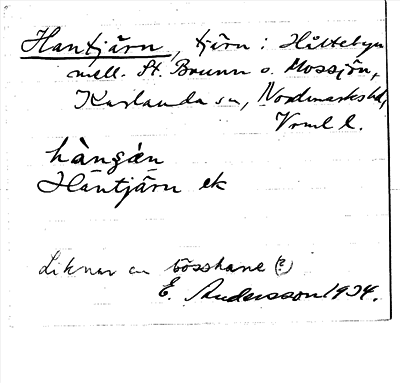 Hantjärn, tjärn i Håltebyn
mell. St. Brunn o. Mossjön,
Karlanda sn, Nordmarks hd,
Vrml l.
hàngǽn
Häntjärn ek
Liknar en bösshane (?)
E. Andersson 1934.